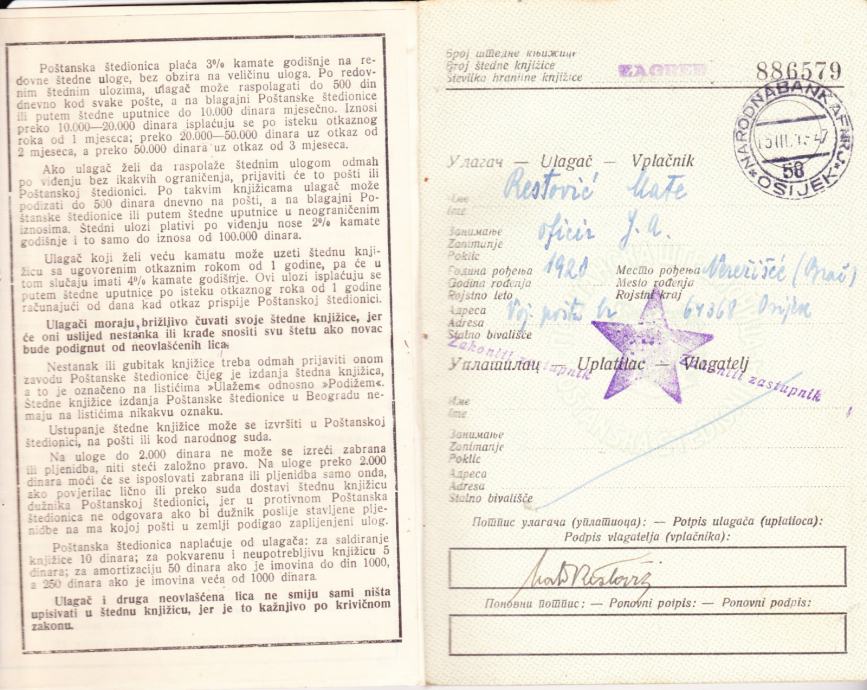 Poštanska štedionica plaća 3% kamate godišnje na re-
dovne štedne uloge, bez obzira na veličinu uloga. Po redov-
nim štednim ulozima, ulagač može raspolagati do 500 din
dnevno kod svake pošte, a na blagajni Poštanske štedionice
ili putem štedne uputnice do 10.000 dinara mjesečno. Iznosi
preko 10.000—20.000 dinara isplaćuju se po isteku otkaznog
roka od 1 mjeseca; preko 20.000—50.000 dinara uz otkaz od
2 mjeseca, a preko 50.000 dinara uz otkaz od 3 mjeseca.
Ako ulagač želi da raspolaže štednim ulogom odmah
po viđenju bez ikakvih ograničenja, prijaviti će to pošti ili
Poštanskoj štedionici. Po takvim knjižicama ulagač može
podizati do 500 dinara dnevno na pošti, a na blagajni Po-
štanske štedionice ili putem štedne uputnice u neograničenim
iznosima. Štedni ulozi plativi po viđenju nose 2% kamate
godišnje i to samo do iznosa od 100.000 dinara.
Ulagač koji želi veću kamatu može uzeti štednu knji-
žicu sa ugovorenim otkaznim rokom od 1 godine, pa će u
tom slučaju imati 4% kamate godišnje. Ovi ulozi isplaćuju se
putem štedne uputnice po isteku otkaznog roka od 1 godine
računajući od dana kad otkaz prispije Poštanskoj štedionici.
Ulagači moraju brižljivo čuvati svoje štedne knjižice, jer
će oni uslijed nestanka ili krađe snositi svu štetu ako novac
bude podignut od neovlašćenih lica.
Nestanak ili gubitak knjižice treba odmah prijaviti onom
zavodu Poštanske štedionice čijeg je izdanja štedna knjižica,
a to je označeno na listićima »Ulažem« odnosno »Podižem«.
Štedne knjižice izdanja Poštanske štedionice u Beogradu ne-
maju na listićima nikakvu oznaku.
Ustupanje štedne knjižice može se izvršiti u Poštanskoj
štedionici, na pošti ili kod narodnog suda.
Na uloge do 2.000 dinara ne može se izreći zabrana
ili pljenidba, niti steći založno pravo. Na uloge preko 2.000
dinara moći će se isposlovati zabrana ili pljenidba samo onda,
ako povjerilac lično ili preko suda dostavi štednu knjižicu
dužnika Poštanskoj štedionici, jer u protivnom Poštanska
štedionica ne odgovara ako bi dužnik poslije stavljene plje-
nidbe na ma kojoj pošti u zemlji podigao zaplijenjeni ulog.
Poštanska štedionica naplaćuje od ulagača: za saldiranje
knjižice 10 dinara; za pokvarenu i neupotrebljivu knjižicu 5
dinara; za amortizaciju 50 dinara ako je imovina do din 1000,
a 250 dinara ako je imovina veća od 1000 dinara.
Ulagač i druga neovlašćena lica ne smiju sami ništa
upisivati u štednu knjižicu, jer je to kažnjivo po krivičnom
zakonu.
Број штедне књижице
Broj štedne knjižice
Številka hranilne knjižice ZAGREB 886579
NARODNA BANKA FNRJ
58
OSIJEK
Улагач — Ulagač — Vplačnik
Restović Mate
Име
Ime
Занимање
Zanimanje oficir J. A.
Poklic
Година рођења 1920 Место рођења Nerežišće (Brač)
Godina rođenja Mesto rođenja
Rojstno leto Rojstni kraj
Адреса Voj. pošta br 64368 Osijek
Adresa
Stalno bivališče
Zakoniti zastupnik Zakoniti zastupnik
Уплатилац — Uplatilac — Vlagatelj
Име
Ime
Занимање
Zanimanje
Poklic
Адреса
Adresa
Stalno bivališče
Потпис улагача (уплатиоца): — Potpis ulagača (uplatioca):
Podpis vlagatelja (vplačnika):
Mate Restović
Поновни потпис: — Ponovni potpis: — Ponovni podpis: